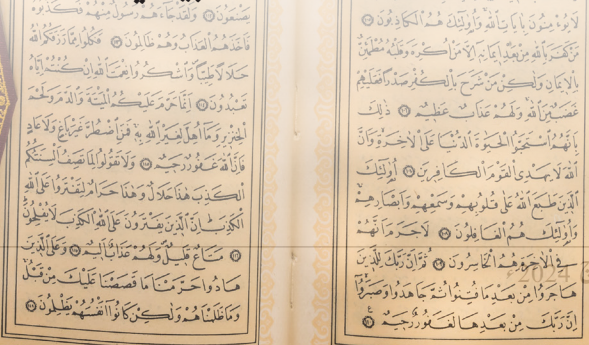 لَا يُؤْمِنُونَ بِآيَاتِ اللَّهِ وَأُولَٰئِكَ هُمُ الْكَاذِبُونَ
مَنْ كَفَرَ بِاللَّهِ مِنْ بَعْدِ إِيمَانِهِ إِلَّا مَنْ أُكْرِهَ وَقَلْبُهُ مُطْمَئِنٌّ
بِالْإِيمَانِ وَلَٰكِنْ مَنْ شَرَحَ بِالْكُفْرِ صَدْرًا فَعَلَيْهِمْ
غَضَبٌ مِنَ اللَّهِ وَلَهُمْ عَذَابٌ عَظِيمٌ ذَٰلِكَ
بِأَنَّهُمُ اسْتَحَبُّوا الْحَيَوٰةَ الدُّنْيَا عَلَى الْآخِرَةِ وَأَنَّ
اللَّهَ لَا يَهْدِي الْقَوْمَ الْكَافِرِينَ أُولَٰئِكَ
الَّذِينَ طَبَعَ اللَّهُ عَلَىٰ قُلُوبِهِمْ وَسَمْعِهِمْ وَأَبْصَارِهِمْ
وَأُولَٰئِكَ هُمُ الْغَافِلُونَ لَا جَرَمَ أَنَّهُمْ
فِي الْآخِرَةِ هُمُ الْخَاسِرُونَ ثُمَّ إِنَّ رَبَّكَ لِلَّذِينَ
هَاجَرُوا مِنْ بَعْدِ مَا فُتِنُوا ثُمَّ جَاهَدُوا وَصَبَرُوا
إِنَّ رَبَّكَ مِنْ بَعْدِهَا لَغَفُورٌ رَحِيمٌ
يَصْنَعُونَ وَلَقَدْ جَاءَهُمْ رَسُولٌ مِنْهُمْ فَكَذَّبُوهُ
فَأَخَذَهُمُ الْعَذَابُ وَهُمْ ظَالِمُونَ فَكُلُوا مِمَّا رَزَقَكُمُ اللَّهُ
حَلَالًا طَيِّبًا وَاشْكُرُوا نِعْمَتَ اللَّهِ إِنْ كُنْتُمْ إِيَّاهُ
تَعْبُدُونَ إِنَّمَا حَرَّمَ عَلَيْكُمُ الْمَيْتَةَ وَالدَّمَ وَلَحْمَ
الْخِنْزِيرِ وَمَا أُهِلَّ لِغَيْرِ اللَّهِ بِهِ فَمَنِ اضْطُرَّ غَيْرَ بَاغٍ وَلَا عَادٍ
فَإِنَّ اللَّهَ غَفُورٌ رَحِيمٌ وَلَا تَقُولُوا لِمَا تَصِفُ أَلْسِنَتُكُمُ
الْكَذِبَ هَٰذَا حَلَالٌ وَهَٰذَا حَرَامٌ لِتَفْتَرُوا عَلَى اللَّهِ
الْكَذِبَ إِنَّ الَّذِينَ يَفْتَرُونَ عَلَى اللَّهِ الْكَذِبَ لَا يُفْلِحُونَ
مَتَاعٌ قَلِيلٌ وَلَهُمْ عَذَابٌ أَلِيمٌ وَعَلَى الَّذِينَ
هَادُوا حَرَّمْنَا مَا قَصَصْنَا عَلَيْكَ مِنْ قَبْلُ
وَمَا ظَلَمْنَاهُمْ وَلَٰكِنْ كَانُوا أَنْفُسَهُمْ يَظْلِمُونَ
2024